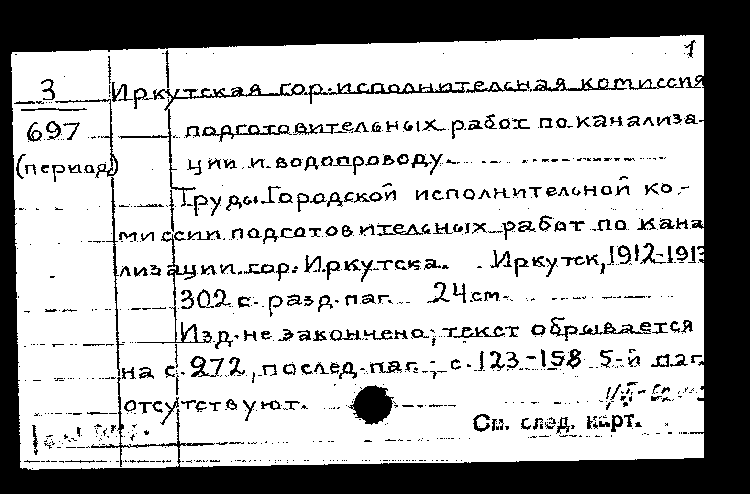 1
3
697
(период.)
Иркутская гор. исполнительная комиссия
подготовительных работ по канализа-
ции и водопроводу.
Труды Городской исполнительной ко-
миссии подготовительных работ по кана
лизации гор. Иркутска. Иркутск, 1912-1913
302 с. разд. паг. 24 см.
Изд. не закончено; текст обрывается
на с. 272, послед. паг.; с. 123-158 5-й паг.
отсутствуют.
См. след. карт.